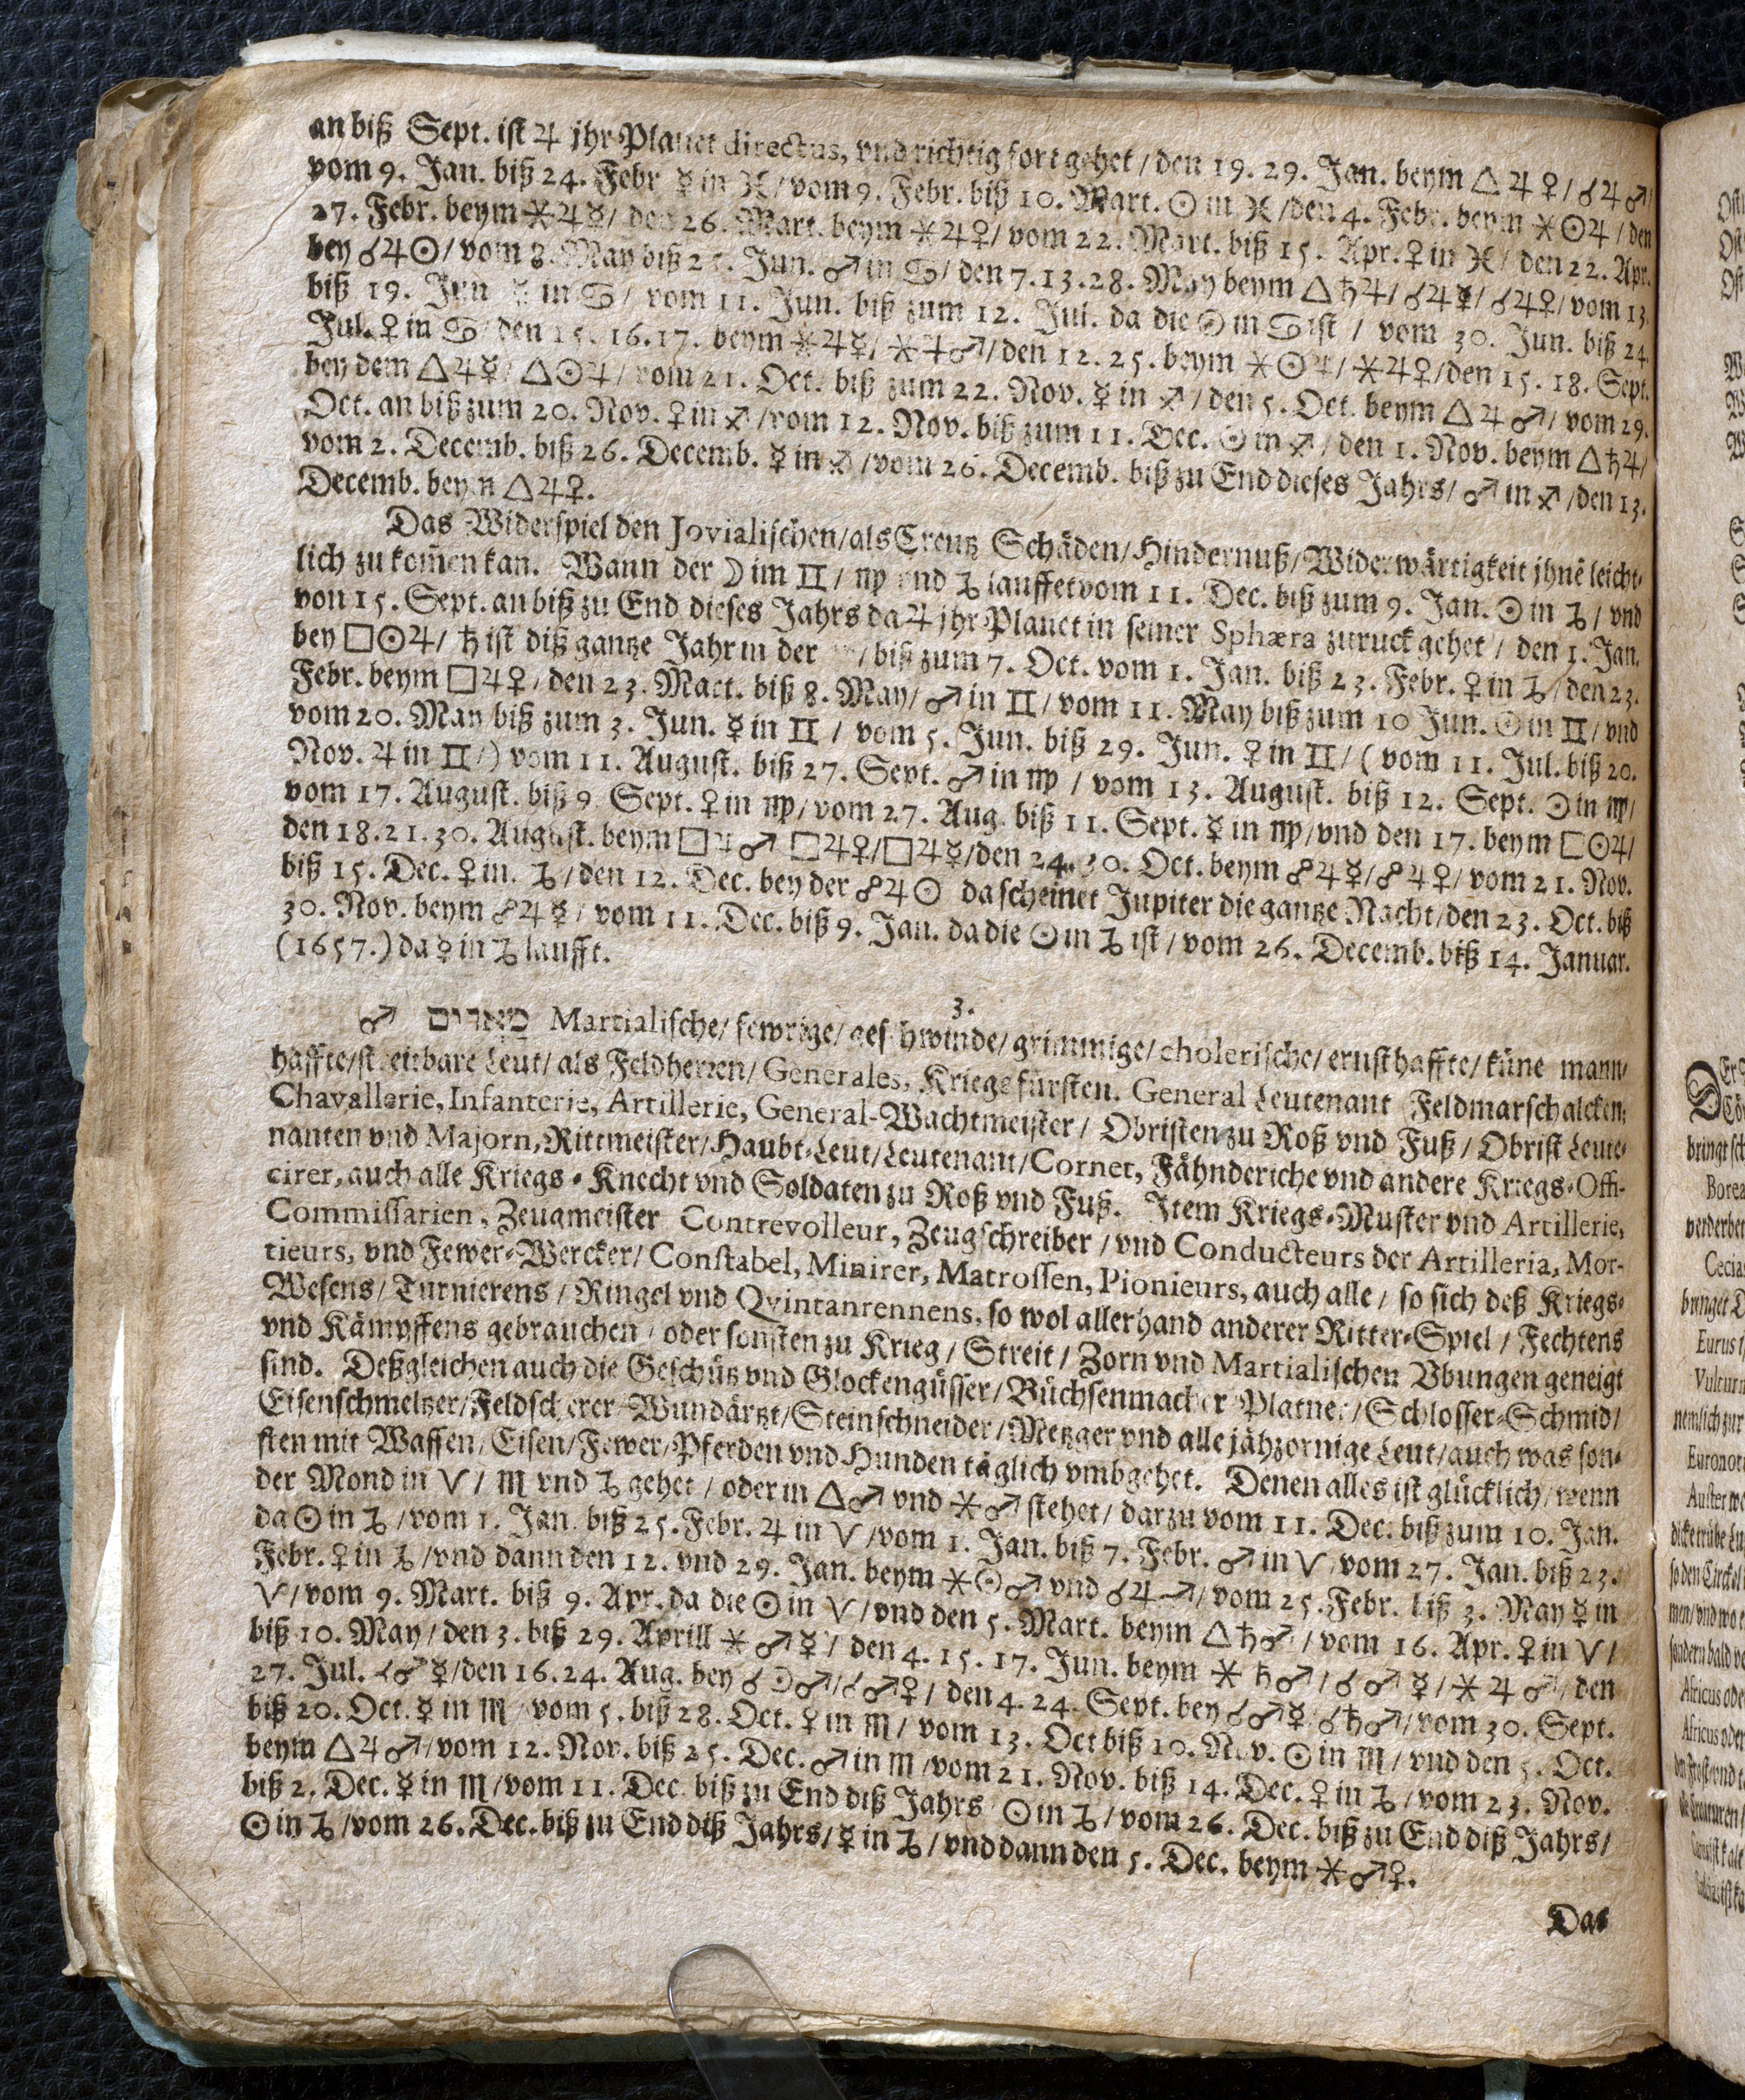 an biß Sept. ist ♃ jhr Planet directus, vnd richtig fort gehet / den 19. 29. Jan. beym △ ♃ ♀ / ☌ ♃ ♂ /
vom 9. Jan. biß 24. Febr ☿ in ♓ / vom 9. Febr. biß 10. Mart. ☉ in ♓ / den 4. Febr. beym ⚹ ☉ ♃ / den
27. Febr. beym ⚹ ♃ ☿ / den 26. Mart. beym ⚹ ♃ ♀ / vom 22. Mart. biß 15. Apr. ♀ in ♓ / den 22. Apr.
bey ☌ ♃ ☉ / vom 8. May biß 25. Jun. ♂ in ♋ / den 7. 13. 28. May beym △ ♄ ♃ / ☌ ♃ ☿ / ☌ ♃ ♀ / vom 13.
biß 19. Jun ☿ in ♋ / vom 11. Jun. biß zum 12. Jul. da die ☉ in ♋ ist / vom 30. Jun. biß 24.
Jul. ♀ in ♋ / den 15. 16. 17. beym ⚹ ♃ ☿ / ⚹ ♃ ♂ / den 12. 25. beym ⚹ ☉ ♃ / ⚹ ♃ ♀ / den 15. 18. Sept.
bey dem △ ♃ ☿ / △ ☉ ♃ / vom 21. Oct. biß zum 22. Nov. ☿ in ♐ / den 5. Oct. beym △ ♃ ♂ / vom 29.
Oct. an biß zum 20. Nov. ♀ in ♐ / vom 12. Nov. biß zum 11. Dec. ☉ in ♐ / den 1. Nov. beym △ ♄ ♃ /
vom 2. Decemb. biß 26. Decemb. ☿ in ♐ / vom 26. Decemb. biß zu End dieses Jahrs / ♂ in ♐ / den 13.
Decemb. beym △ ♃ ♀.
Das Widerspiel den Jovialischen / als Creutz Schäden / Hindernuß / Widerwärtigkeit jhnē leicht-
lich zu kom̄en kan. Wann der ☽ im ♊ / ♍ vnd ♑ lauffet vom 11. Dec. biß zum 9. Jan. ☉ in ♑ / vnd
von 15. Sept. an biß zu End dieses Jahrs da ♃ jhr Planet in seiner Sphæra zuruck gehet / den 1. Jan.
bey □ ☉ ♃ / ♄ ist diß gantze Jahr in der / biß zum 7. Oct. vom 1. Jan. biß 23. Febr. ♀ in ♑ / den 23.
Febr. beym □ ♃ ♀ / den 23. Mart. biß 8. May / ♂ in ♊ / vom 11. May biß zum 10 Jun. ☉ in ♊ / vnd
vom 20. May biß zum 3. Jun. ☿ in ♊ / vom 5. Jun. biß 29. Jun. ♀ in ♊ / ( vom 11. Jul. biß 20.
Nov. ♃ in ♊ / ) vom 11. August. biß 27. Sept. ♂ in ♍ / vom 13. August. biß 12. Sept. ☉ in ♍ /
vom 17. August. biß 9 Sept. ♀ in ♍ / vom 27. Aug. biß 11. Sept. ☿ in ♍ / vnd den 17. beym □ ☉ ♃ /
den 18. 21. 30. August. beym □ ♃ ♂ □ ♃ ♀ / □ ♃ ☿ / den 24. 30. Oct. beym ☍ ♃ ☿ / ☍ ♃ ♀ / vom 21. Nov.
biß 15. Dec. ♀ in. ♑ / den 12. Dec. bey der ☍ ♃ ☉ da scheinet Jupiter die gantze Nacht / den 23. Oct. biß
30. Nov. beym ☍ ♃ ☿ / vom 11. Dec. biß 9. Jan. da die ☉ in ♑ ist / vom 26. Decemb. biß 14. Januar.
(1657.) da ☿ in ♑ laufft.
3.
♂ מאדים Martialische / fewrige / geschwinde / grimmige / cholerische / ernsthaffte / küne mann-
haffte / streitbare Leut / als Feldherren / Generales, Kriegsfürsten. General Leutenant Feldmarschalcken:
Chavallerie, Infanterie, Artillerie, General-Wachtmeister / Obristen zu Roß vnd Fuß / Obrist Leute-
nanten vnd Majorn, Rittmeister / Haubt-Leut / Leutenant / Cornet, Fähnderiche vnd andere Kriegs-Offi-
cirer, auch alle Kriegs-Knecht vnd Soldaten zu Roß vnd Fuß. Item Kriegs-Muster vnd Artillerie,
Commissarien, Zeugmeister Contrevolleur, Zeugschreiber / vnd Conducteurs der Artilleria, Mor-
tieurs, vnd Fewer-Wercker / Constabel, Minirer, Matrossen, Pionieurs, auch alle / so sich deß Kriegs-
Wesens / Turnierens / Ringel vnd Qvintanrennens, so wol allerhand anderer Ritter-Spiel / Fechtens
vnd Kämpffens gebrauchen / oder sonsten zu Krieg / Streit / Zorn vnd Martialischen Vbungen geneigt
sind. Deßgleichen auch die Geschütz vnd Glockengüsser / Büchsenmacher Platner / Schlosser-Schmid /
Eisenschmeltzer / Feldscherer Wundärtzt / Steinschneider / Metzger vnd alle jähzornige Leut / auch was son-
sten mit Waffen / Eisen / Fewer / Pferden vnd Hunden täglich vmbgehet. Denen alles ist glücklich / wenn
der Mond in ♈ / ♏ vnd ♑ gehet / oder in △ ♂ vnd ⚹ ♂ stehet / darzu vom 11. Dec. biß zum 10. Jan.
da ☉ in ♑ / vom 1. Jan. biß 25. Febr. ♃ in ♈ / vom 1. Jan. biß 7. Febr. ♂ in ♈ / vom 27. Jan. biß 23.
Febr. ♀ in ♑ / vnd dann den 12. vnd 29. Jan. beym ⚹ ☉ ♂ vnd ☌ ♃ ♂ / vom 25. Febr. biß 3. May ☿ in
♈ / vom 9. Mart. biß 9. Apr. da die ☉ in ♈ / vnd den 5. Mart. beym △ ♄ ♂ / vom 16. Apr. ♀ in ♈ /
biß 10. May / den 3. biß 29. Aprill ⚹ ♂ ☿ / den 4. 15. 17. Jun. beym ⚹ ♄ ♂ / ☌ ♂ ☿ / ⚹ ♃ ♂ / den
27. Jul. ☌ ♂ ☿ / den 16. 24. Aug. bey ☌ ☉ ♂ / ☌ ♂ ♀ / den 4. 24. Sept. bey ☌ ♂ ☿ / ☌ ♄ ♂ / vom 30. Sept.
biß 20. Oct. ☿ in ♏ / vom 5. biß 28. Oct. ♀ in ♏ / vom 13. Oct biß 10. Nov. ☉ in ♏ / vnd den 5. Oct.
beym △ ♃ ♂ / vom 12. Nov. biß 25. Dec. ♂ in ♏ / vom 21. Nov. biß 14. Dec. ♀ in ♑ / vom 23. Nov.
biß 2. Dec. ☿ in ♏ / vom 11. Dec. biß zu End diß Jahrs ☉ in ♑ / vom 26. Dec. biß zu End diß Jahrs /
☉ in ♑ / vom 26. Dec. biß zu End diß Jahrs / ☿ in ♑ / vnd dann den 5. Dec. beym ⚹ ♂ ♀.
Das